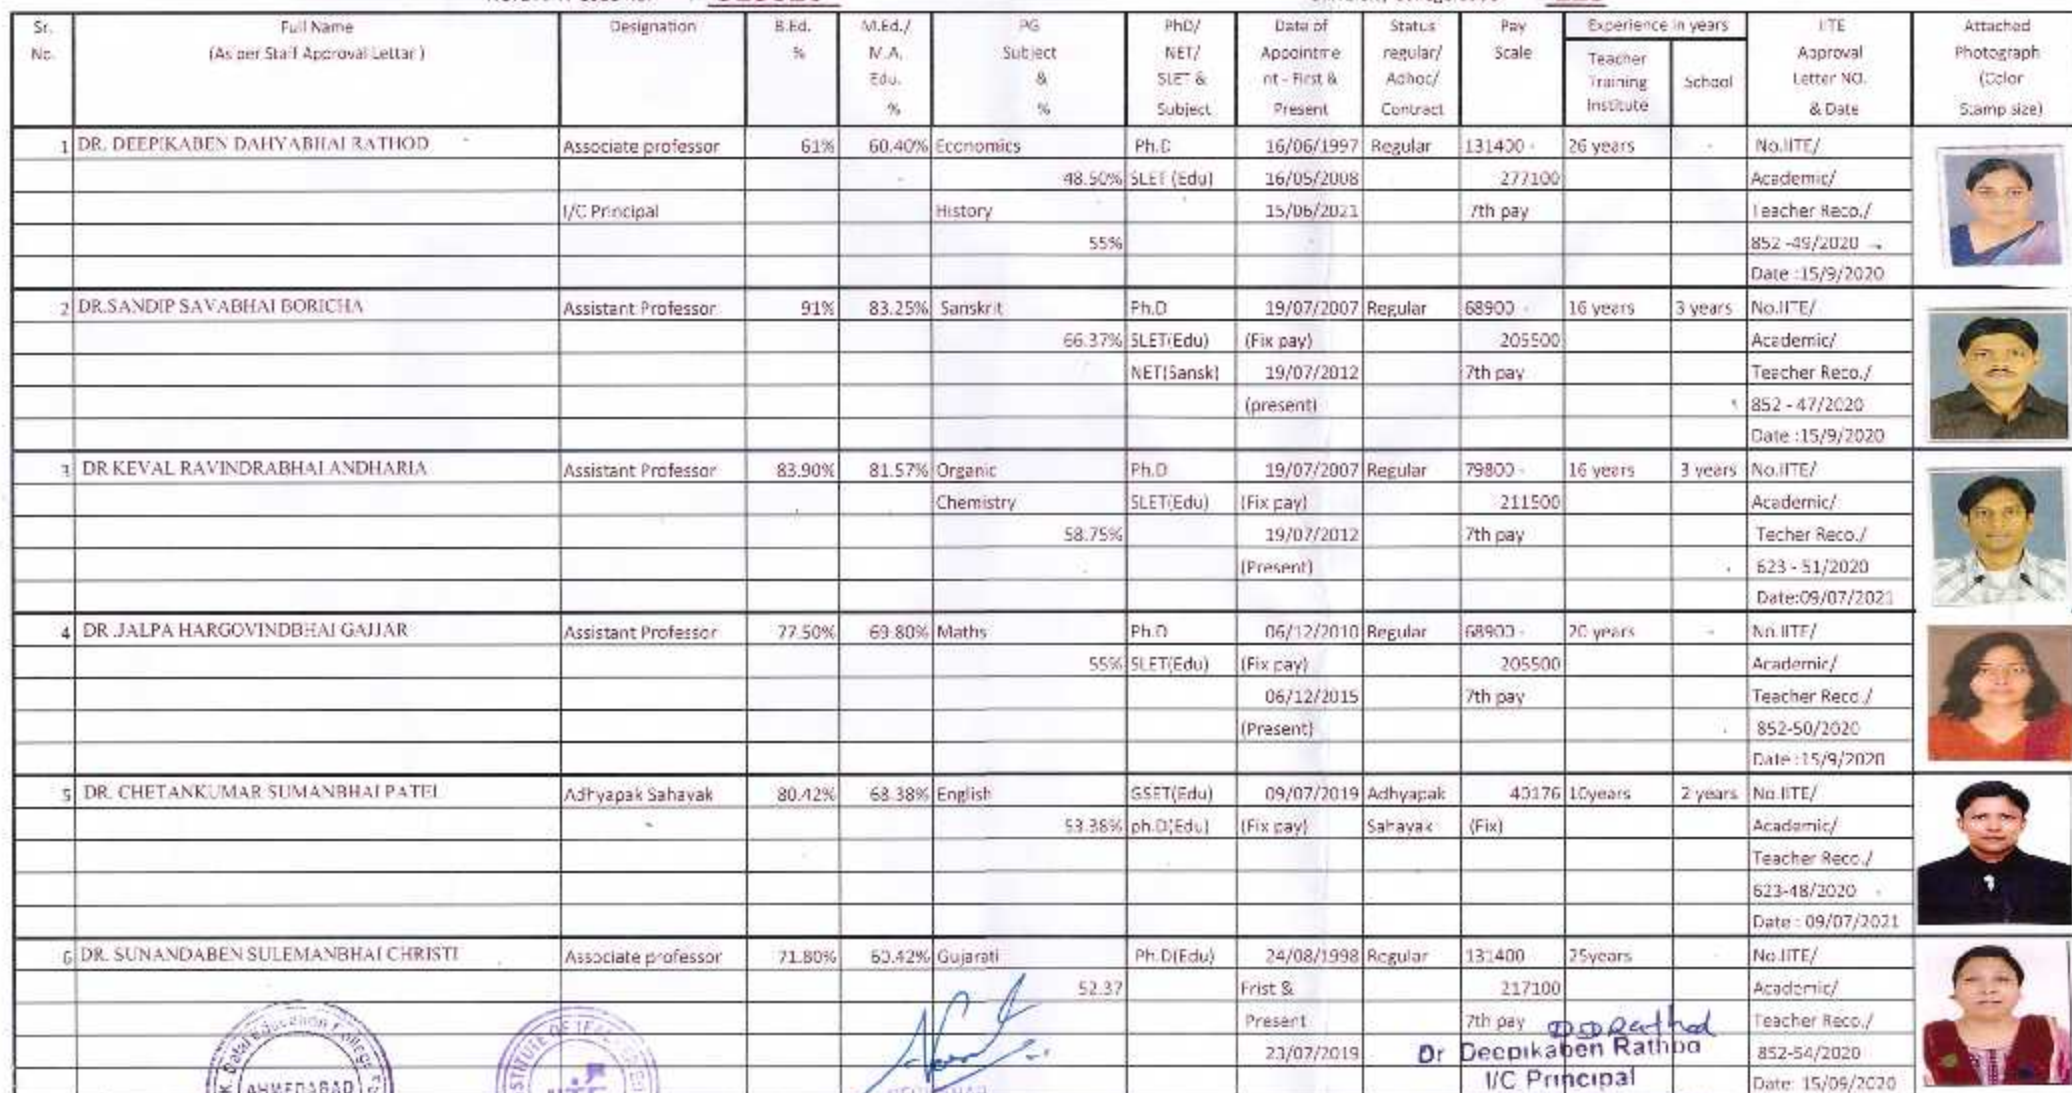 Sr. No. | Full Name (As per Staff Approval Lettar ) | Designation | B.Ed. % | M.Ed./ M.A. Edu. % | PG Subject & % | PhD/ NET/ SLET & Subject | Date of Appointme nt - First & Present | Status regular/ Adhoc/ Contract | Pay Scale | Experience in years | IITE Approval Letter NO. & Date | Attached Photograph (Color Stamp size)
Teacher Training Institute | School
1 | DR. DEEPIKABEN DAHYABHAI RATHOD | Associate professor | 61% | 60.40% | Economics | Ph.D | 16/06/1997 | Regular | 131400 - | 26 years | - | No.IITE/
48.50% | SLET (Edu) | 16/05/2008 | 277100 | Academic/
I/C Principal | History | 15/06/2021 | 7th pay | Teacher Reco./
55% | 852 -49/2020
Date :15/9/2020
2 | DR.SANDIP SAVABHAI BORICHA | Assistant Professor | 91% | 83.25% | Sanskrit | Ph.D | 19/07/2007 | Regular | 68900 - | 16 years | 3 years | No.IITE/
66.37% | SLET(Edu) | (Fix pay) | 205500 | Academic/
NET(Sansk) | 19/07/2012 | 7th pay | Teacher Reco./
(present) | 852 - 47/2020
Date :15/9/2020
3 | DR KEVAL RAVINDRABHAI ANDHARIA | Assistant Professor | 83.90% | 81.57% | Organic | Ph.D | 19/07/2007 | Regular | 79800 - | 16 years | 3 years | No.IITE/
Chemistry | SLET(Edu) | (Fix pay) | 211500 | Academic/
58.75% | 19/07/2012 | 7th pay | Techer Reco./
(Present) | 623 - 51/2020
Date:09/07/2021
4 | DR JALPA HARGOVINDBHAI GAJJAR | Assistant Professor | 77.50% | 69.80% | Maths | Ph.D | 06/12/2010 | Regular | 68900 - | 20 years | - | No.IITE/
55% | SLET(Edu) | (Fix pay) | 205500 | Academic/
06/12/2015 | 7th pay | Teacher Reco./
(Present) | 852-50/2020
Date :15/9/2020
5 | DR. CHETANKUMAR SUMANBHAI PATEL | Adhyapak Sahayak | 80.42% | 68.38% | English | GSET(Edu) | 09/07/2019 | Adhyapak | 40176 | 10years | 2 years | No.IITE/
53.38% | ph.D(Edu) | (Fix pay) | Sahayak | (Fix) | Academic/
Teacher Reco./
623-48/2020
Date : 09/07/2021
6 | DR. SUNANDABEN SULEMANBHAI CHRISTI | Associate professor | 71.80% | Gujarati | Ph.D(Edu) | 24/08/1998 | Regular | 131400 | 25years | No.IITE/
52.37 | Frist & | 217100 | Academic/
Present | 7th pay | Teacher Reco./
23/07/2019 | 852-54/2020
Date: 15/09/2020
DDRathod
Dr Deepikaben Rathod
I/C Principal
Education College
AHMEDABAD